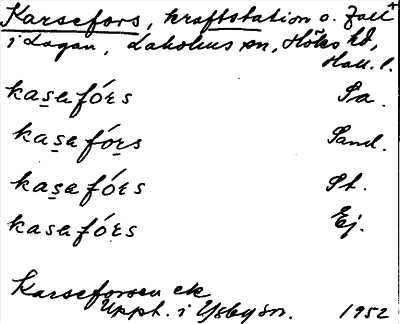 Karsefors, kraftstation o. fall+
i Lagan, Laholms sn, Höks hd,
Hall. l.
kasafórs Sa.
kasafórs Sand.
kasafórs St.
kasafórs Ej.
Karseforsen ek
Uppt. i Ysby sn. 1952